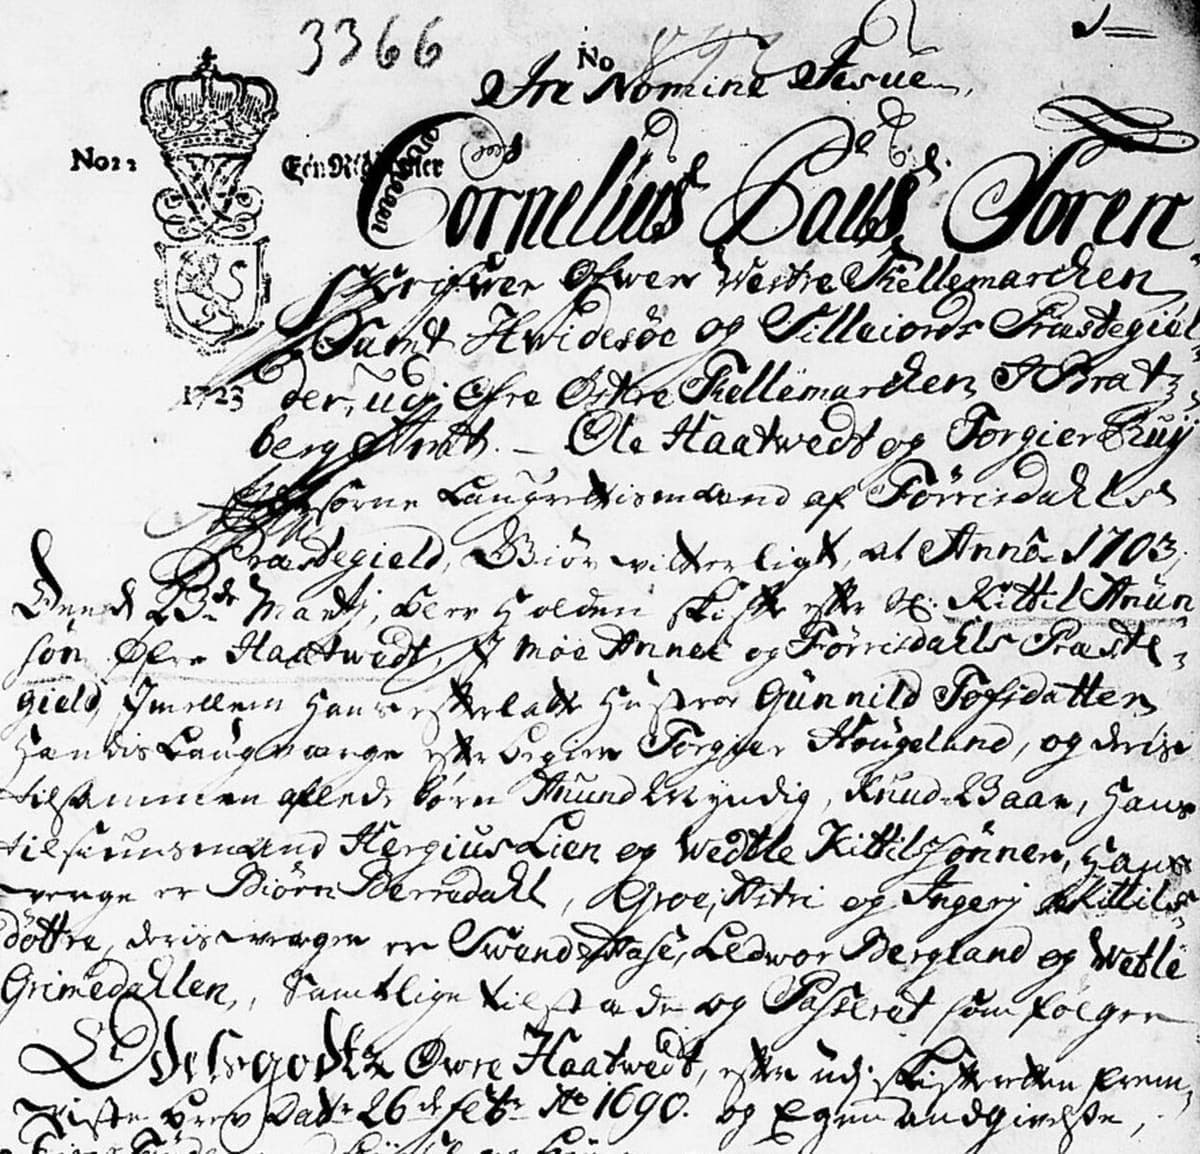 3366
No
In Nomine Jesue
No 22
Een Rixdaler
Cornelius Paus, Soren
skrifwer Ofwer Westre Tellemarcken,
Samt Hwidesøe og Sillaiords Præstegiel-
1723
der, udj Øfre Østre Tellemarcken J Bratz-
berg Ambt. - Ole Haatwedt og Torgier Ruij
sorne Laugrettismænd af Førrisdahls
Præstegield, Giør witterligt, at Anno 1703,
Dend 23de Martij, blew holden skifte efter Sl. Kittil Anun-
søn Øfre Haatwedt, J Moe Annex og Førrisdahls Præste-
gield, Jmellem hans efterlatte hustroe Gunnild Tofsdatter,
hendis Laugwærge efter begiær Torgier Hougeland, og deris
tilsammen aflede børn Anund Myndig, Knud Baar, hans
tilsiunsmand Hergius Lien og Wedtle Kittilsønner, hans
werge er Biørn Berrdahl, Groe, Astri og Ingerj Kittils-
døttre, deris werger er Swend Aase, Ledwor Bergland og Wetle
Grimedahlen, Samtlige tilstæde og Passeret som følger
Odelsgodtz Øwre Haatwedt, efter udj skifteretten frem-
wiste brev Dat: 26de febr: Ao 1690. og Egen andgivelse,